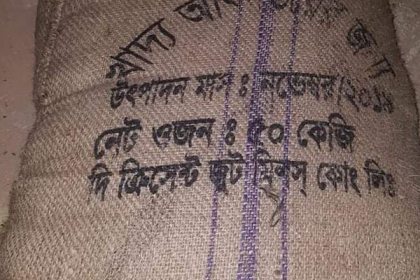 খাদ্য অধিদপ্তরের জন্য
উৎপাদন মাস : নভেম্বর/২০১৯
নেট ওজন : ৫০ কেজি
দি ক্রিসেন্ট জুট মিলস্ কোং লিঃ